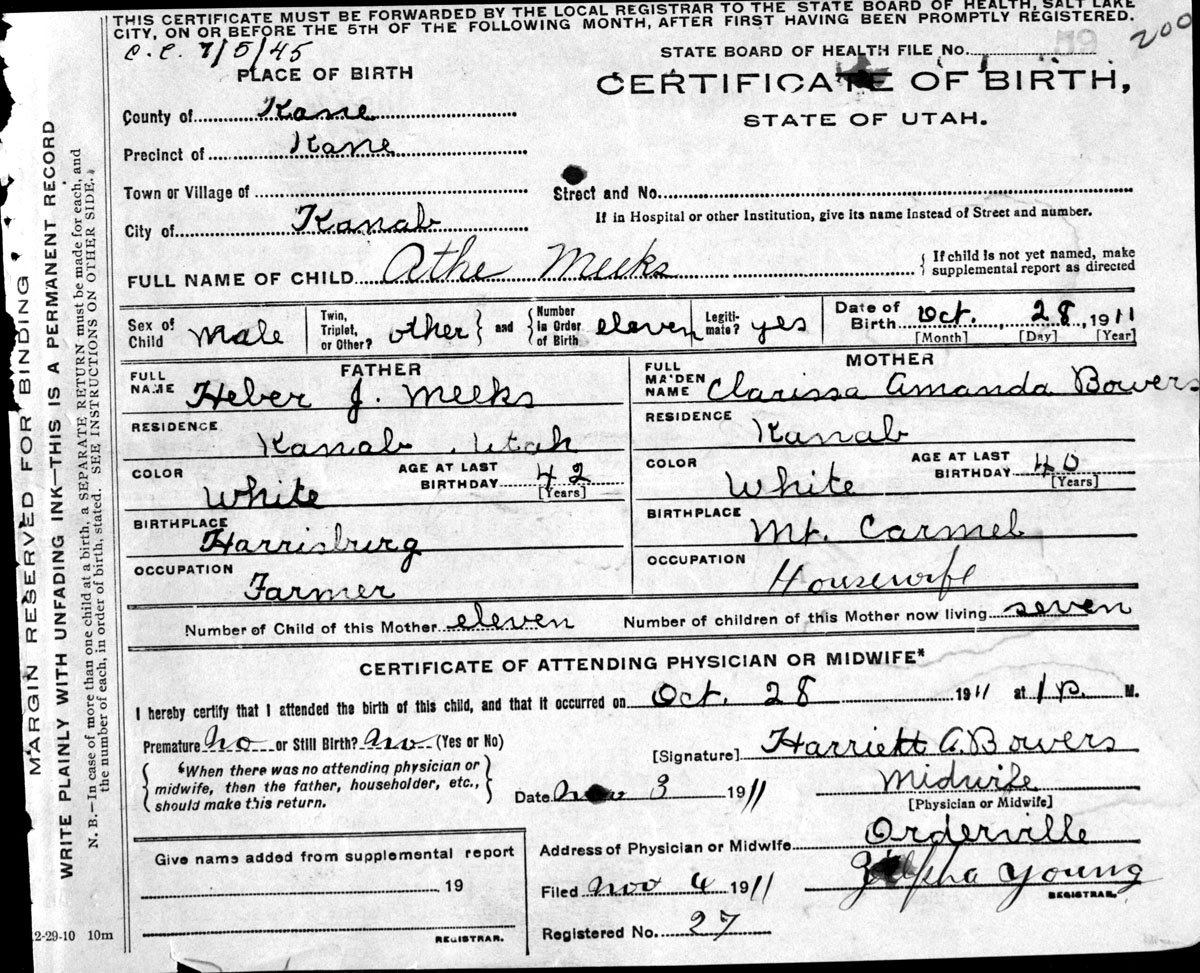 THIS CERTIFICATE MUST BE FORWARDED BY THE LOCAL REGISTRAR TO THE STATE BOARD OF HEALTH, SALT LAKE
CITY, ON OR BEFORE THE 5TH OF THE FOLLOWING MONTH, AFTER FIRST HAVING BEEN PROMPTLY REGISTERED.
C. C. 7/5/45
STATE BOARD OF HEALTH FILE No.
200
PLACE OF BIRTH
CERTIFICATE OF BIRTH,
STATE OF UTAH.
County of Kane
Precinct of Kane
Town or Village of
Street and No.
City of Kanab
If in Hospital or other Institution, give its name Instead of Street and number.
FULL NAME OF CHILD Athe Meeks
{ If child is not yet named, make
supplemental report as directed
Sex of Child Male
Twin, Triplet, or Other? other } and { Number in Order of Birth eleven
Legiti-mate? yes
Date of Birth Oct. , 28 , 1911
[Month] [Day] [Year]
FATHER
FULL NAME Heber J. Meeks
RESIDENCE Kanab, Utah
COLOR White
AGE AT LAST BIRTHDAY 42
[Years]
BIRTHPLACE Harrisburg
OCCUPATION Farmer
MOTHER
FULL MAIDEN NAME Clarissa Amanda Bowers
RESIDENCE Kanab
COLOR White
AGE AT LAST BIRTHDAY 40
[Years]
BIRTHPLACE Mt. Carmel
OCCUPATION Housewife
Number of Child of this Mother eleven
Number of children of this Mother now living seven
CERTIFICATE OF ATTENDING PHYSICIAN OR MIDWIFE*
I hereby certify that I attended the birth of this child, and that it occurred on Oct. 28 1911 at 1 p. M.
Premature No or Still Birth? No (Yes or No)
[Signature] Harriett A. Bowers
{ *When there was no attending physician or
midwife, then the father, householder, etc.,
should make this return. }
Date Nov 3 1911
Midwife
[Physician or Midwife]
Address of Physician or Midwife Orderville
Filed Nov 4 1911
Zilpha Young
REGISTRAR.
Registered No. 27
Give name added from supplemental report
19
REGISTRAR.
2-29-10 10m
MARGIN RESERVED FOR BINDING
WRITE PLAINLY WITH UNFADING INK—THIS IS A PERMANENT RECORD
N. B.—In case of more than one child at a birth, a SEPARATE RETURN must be made for each, and
the number of each, in order of birth, stated. SEE INSTRUCTIONS ON OTHER SIDE.